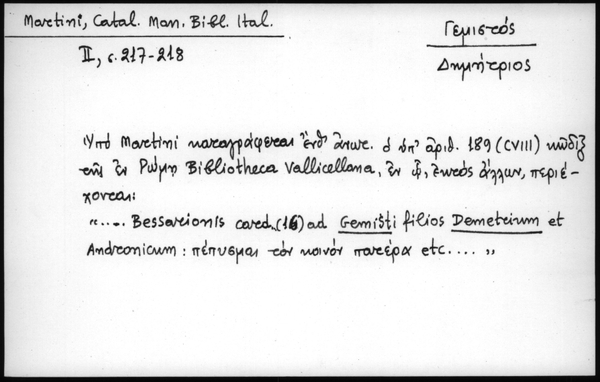 Martini, Catal. Man. Bibl. Ital.
II, σ. 217-218
Γεμιστός
Δημήτριος
Ὑπό Martini καταγράφεται ἔνθ' ἀνωτ. ὁ ὑπ' ἀριθ. 189 (CVIII) κῶδιξ
τῆς ἐν Ρώμῃ Bibliotheca Vallicellana, ἐν ᾧ, ἐκτός ἄλλων, περιέ-
χονται:
"..... Bessarionis card. (16) ad Gemisti filios Demetrium et
Andronicum : πέπυσμαι τόν κοινόν πατέρα etc..... "